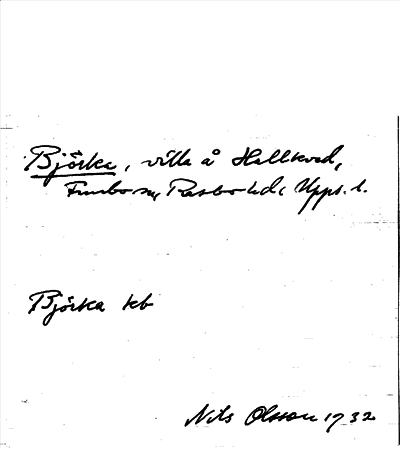 Björka, villa å Hallkved,
Funbo sn, Rasbo hd, Upps. l.
Björka kb
Nils Olsson 1932